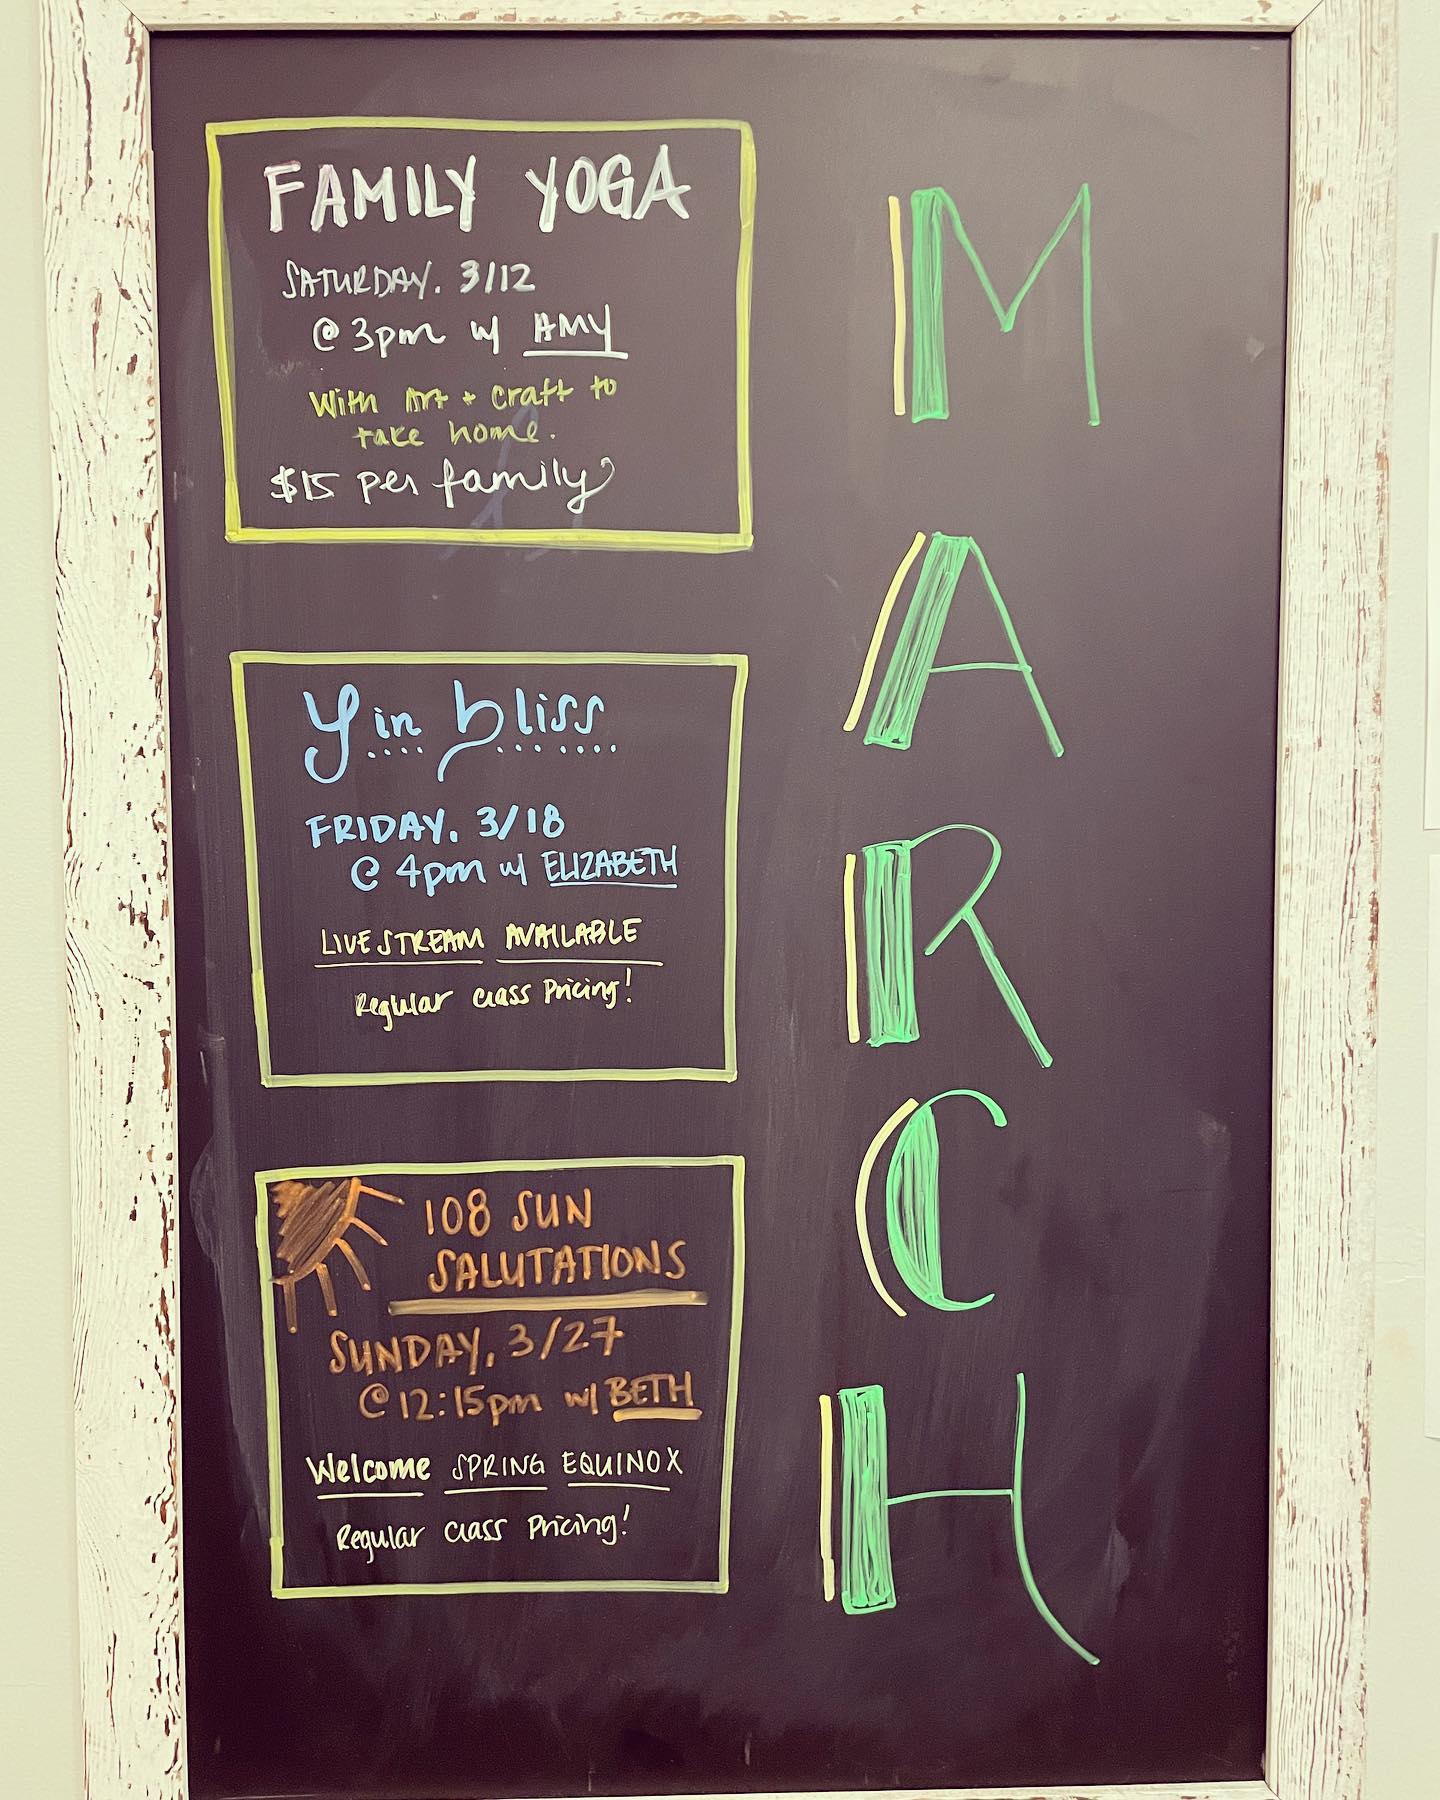 FAMILY YOGA
SATURDAY. 3/12
@ 3pm w/ AMY
With Art + Craft to
take home.
$15 per family
Yin bliss
FRIDAY. 3/18
@ 4pm w/ ELIZABETH
LIVESTREAM AVAILABLE
Regular Class Pricing!
108 SUN
SALUTATIONS
SUNDAY, 3/27
@ 12:15pm w/ BETH
Welcome SPRING EQUINOX
Regular Class Pricing!
M
A
R
C
H